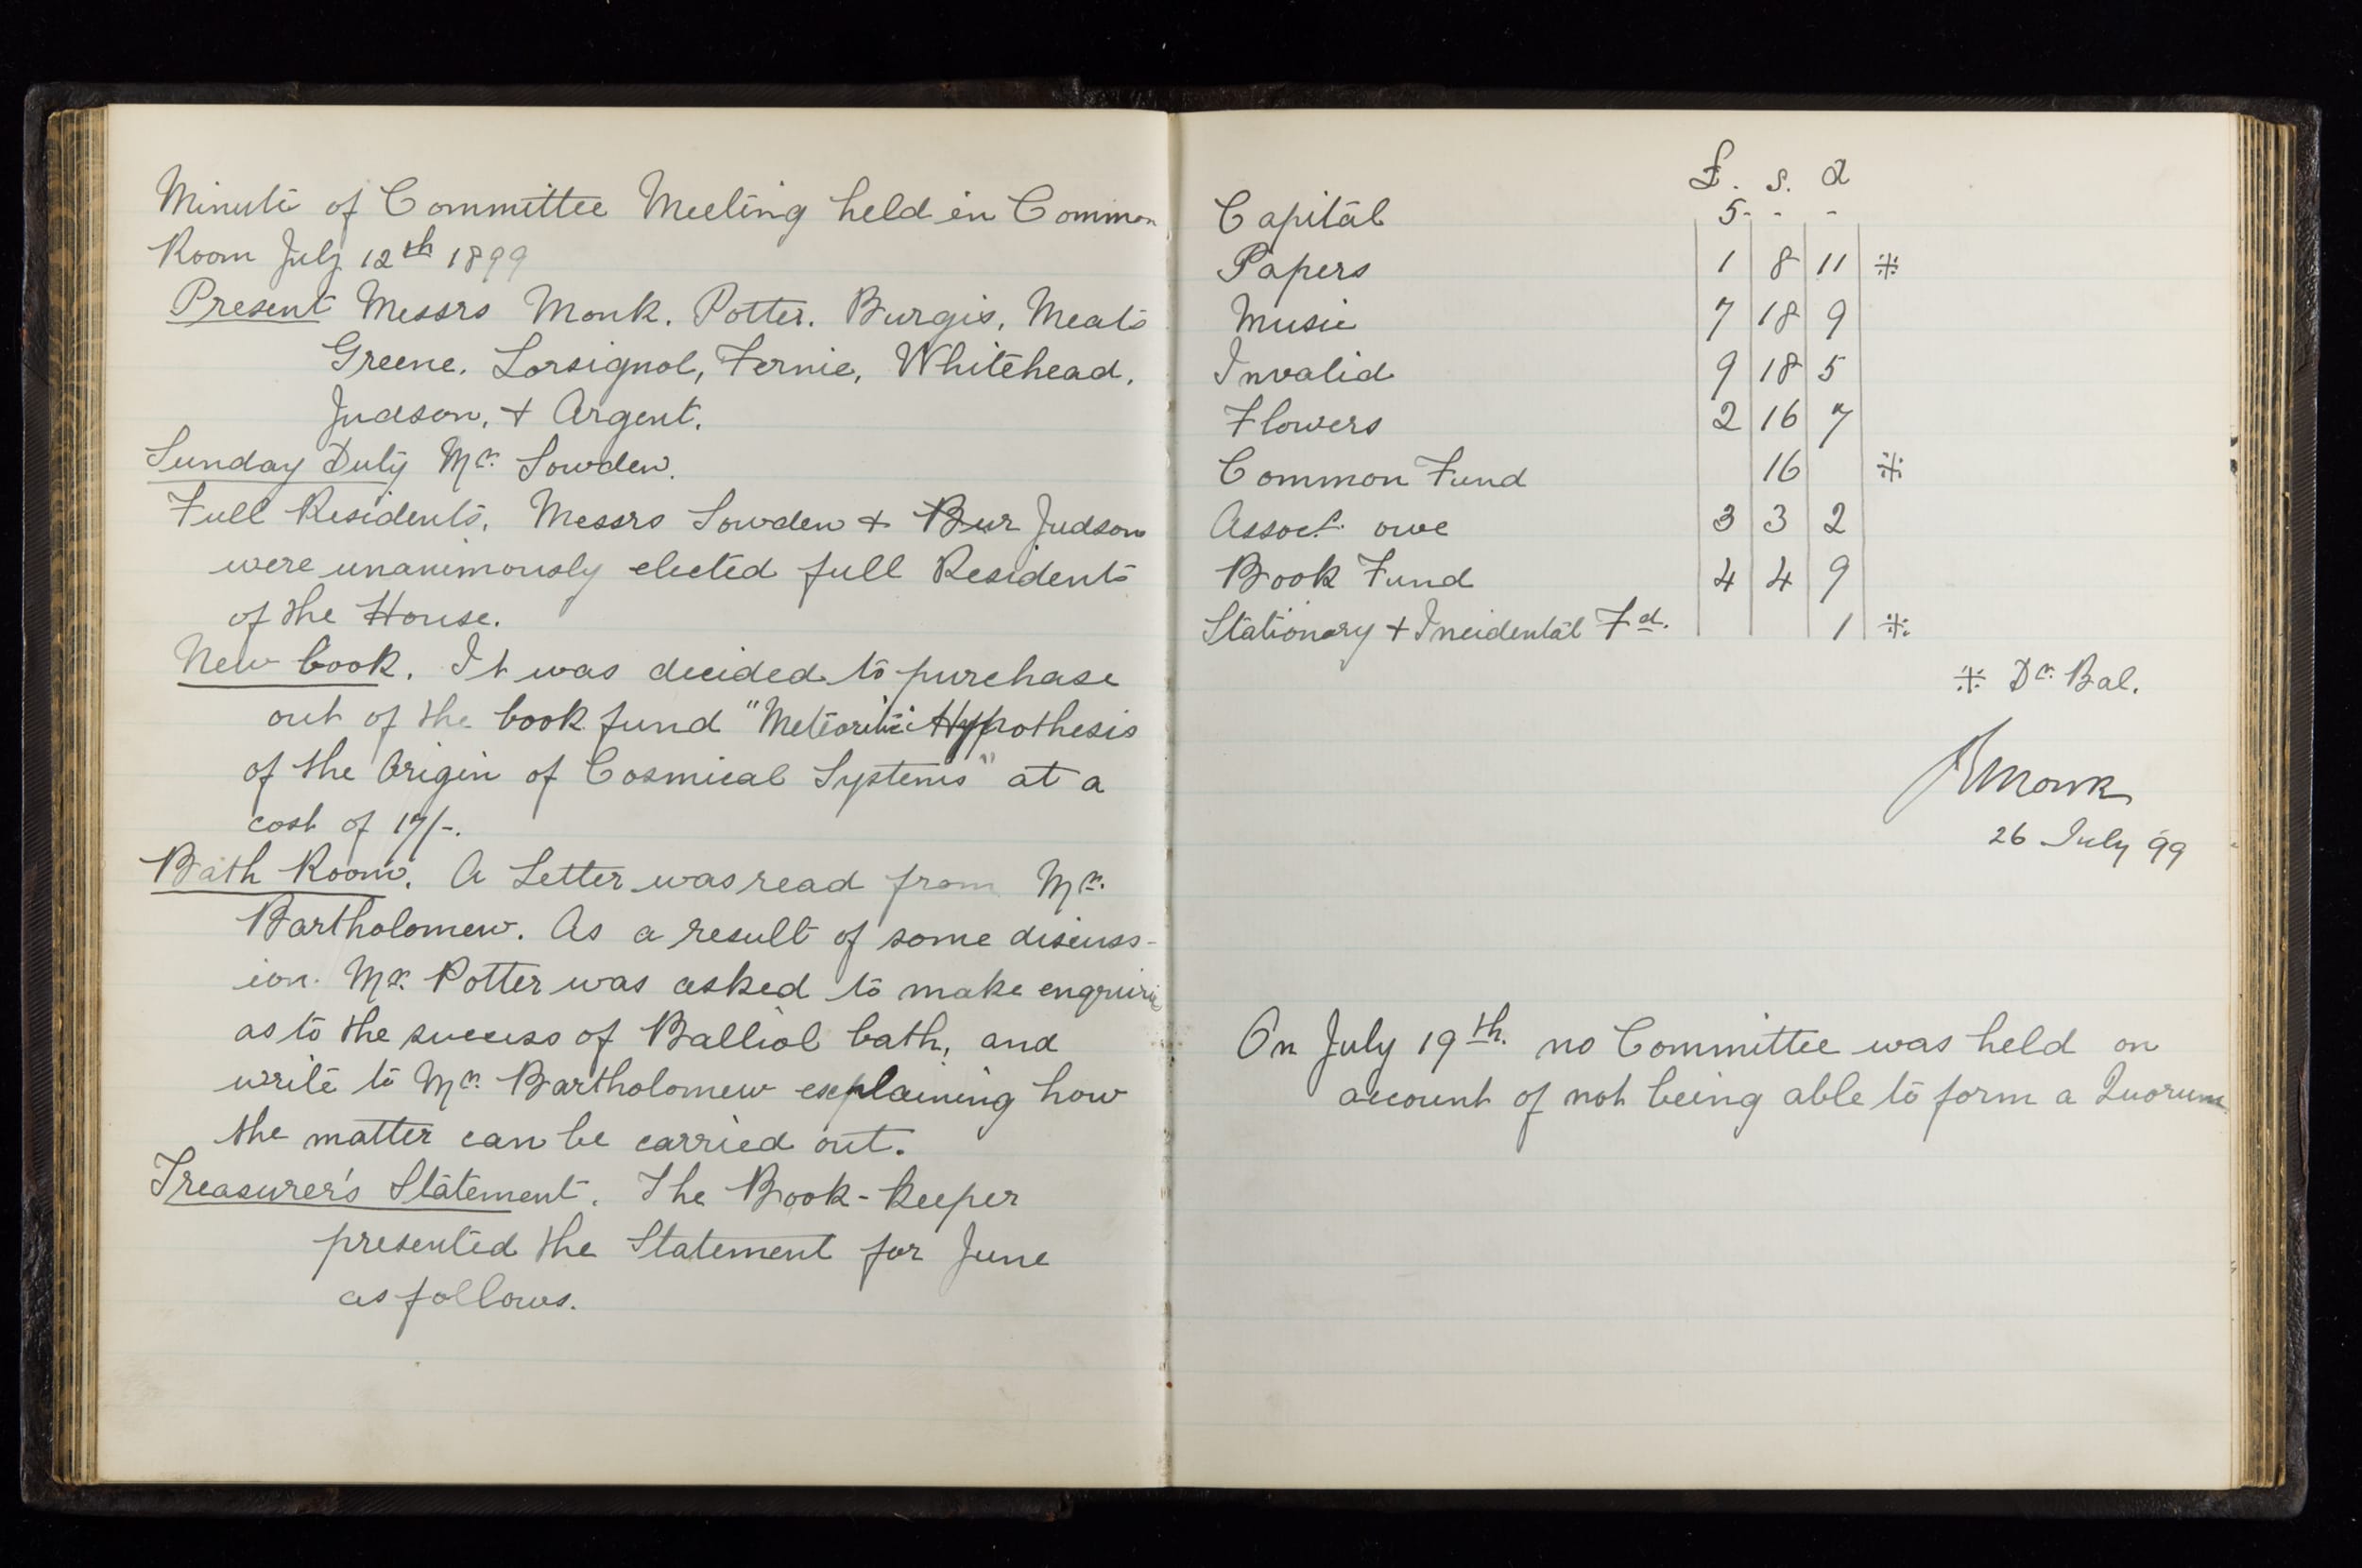 Minute of Committee Meeting held in Common
Room July 12th 1899
Present Messrs Monk. Potter. Burgis, Meats
Greene. Lorsignol, Fernie, Whitehead.
Judson, + Argent.
Sunday Duty Mr. Lowden.
Full Residents. Messrs Lowden + Bur Judson
were unanimously elected full Residents
of the House.
New book. It was decided to purchase
out of the book fund "Meteoritic Hypothesis
of the Origin of Cosmical Systems" at a
cost of 17/-.
Bath Room. A Letter was read from Mr.
Bartholomew. As a result of some discuss-
ion. Mr. Potter was asked to make enquirie
as to the success of Balliol bath, and
write to Mr. Bartholomew explaining how
the matter can be carried out.
Treasurer's Statement. The Book-keeper
presented the Statement for June
as follows.
£. s. d
Capital 5 - - -
Papers 1 8 11 ※
Music 7 18 9
Invalid 9 18 5
Flowers 2 16 7
Common Fund 16 ※
Assoct. owe 3 3 2
Book Fund 4 4 9
Stationary + Incidental Fd. 1 ※
※ Dr. Bal.
Monk
26 July 99
On July 19th. no Committee was held on
account of not being able to form a Quorum